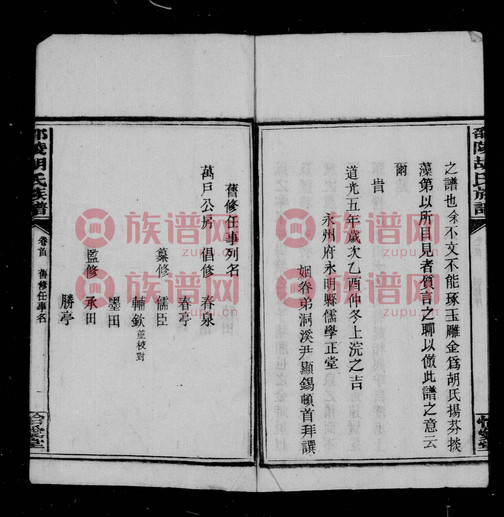 邵陵胡氏族譜
之譜也余不文不能琢玉雕金爲胡氏揚芬掞
藻第以所目見者質言之聊以倣此譜之意云
爾
旹
道光五年歲次乙酉仲冬上浣之吉
永州府永明縣儒學正堂
姻眷弟洞溪尹顯錫頓首拜譔
舊修任事列名
萬戶公房 倡修 春泉
春亭
纂修 儒臣
輔欽 並校對
墨田
監修 承田
勝亭
邵陵胡氏族譜
卷首 舊修任事名
族谱网
zupu.cn